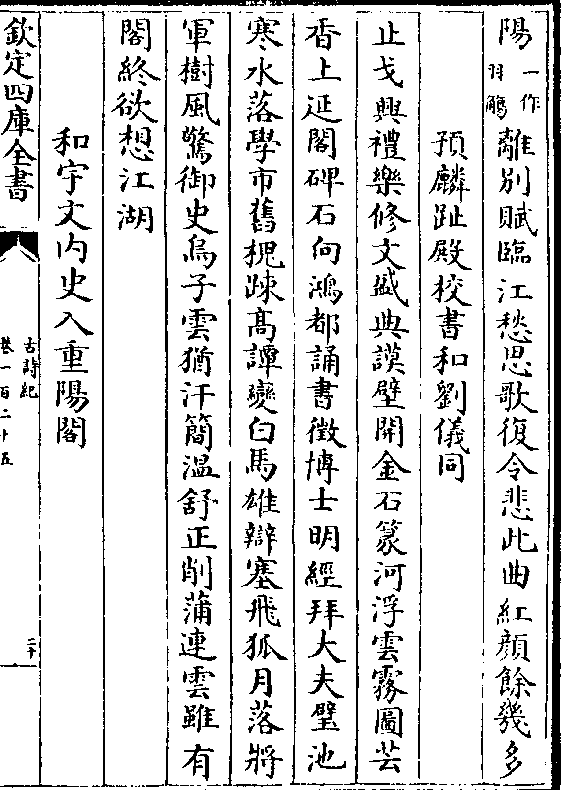 陽一作羽觴離別賦臨江愁思歌復令悲此曲紅顏餘幾多
預麟趾殿校書和劉儀同
止戈興禮樂修文盛典謨壁開金石篆河浮雲霧圖芸
香上延閣碑石向鴻都誦書徵博士明經拜大夫璧池
寒水落學市舊槐疎高譚變白馬雄辯塞飛狐月落將
軍樹風驚御史烏子雲猶汗簡溫舒正削蒲連雲雖有
閣終欲想江湖
和宇文内史入重陽閣
欽定四庫全書
古詩紀
卷一百二十五
二十